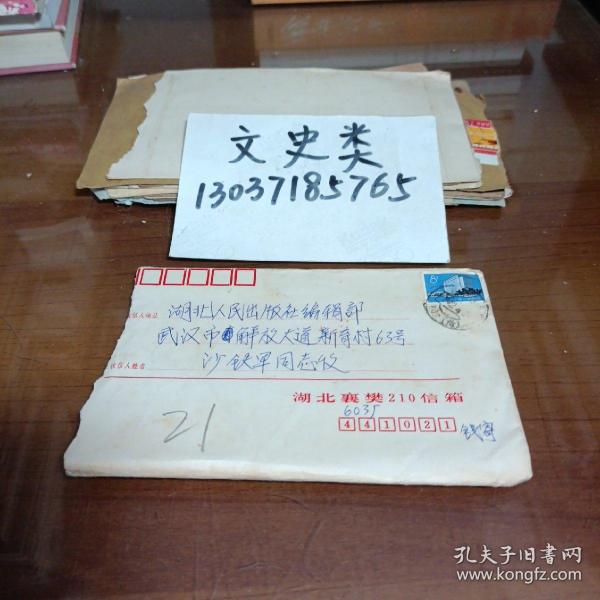 文史类
13037185765
收信人地址
湖北人民出版社编辑部
武汉市解放大道新育村63号
收信人姓名
沙铁军同志收
湖北襄樊210信箱
6035
441021
钱寄
21
8
孔夫子旧书网
www.kongfz.com